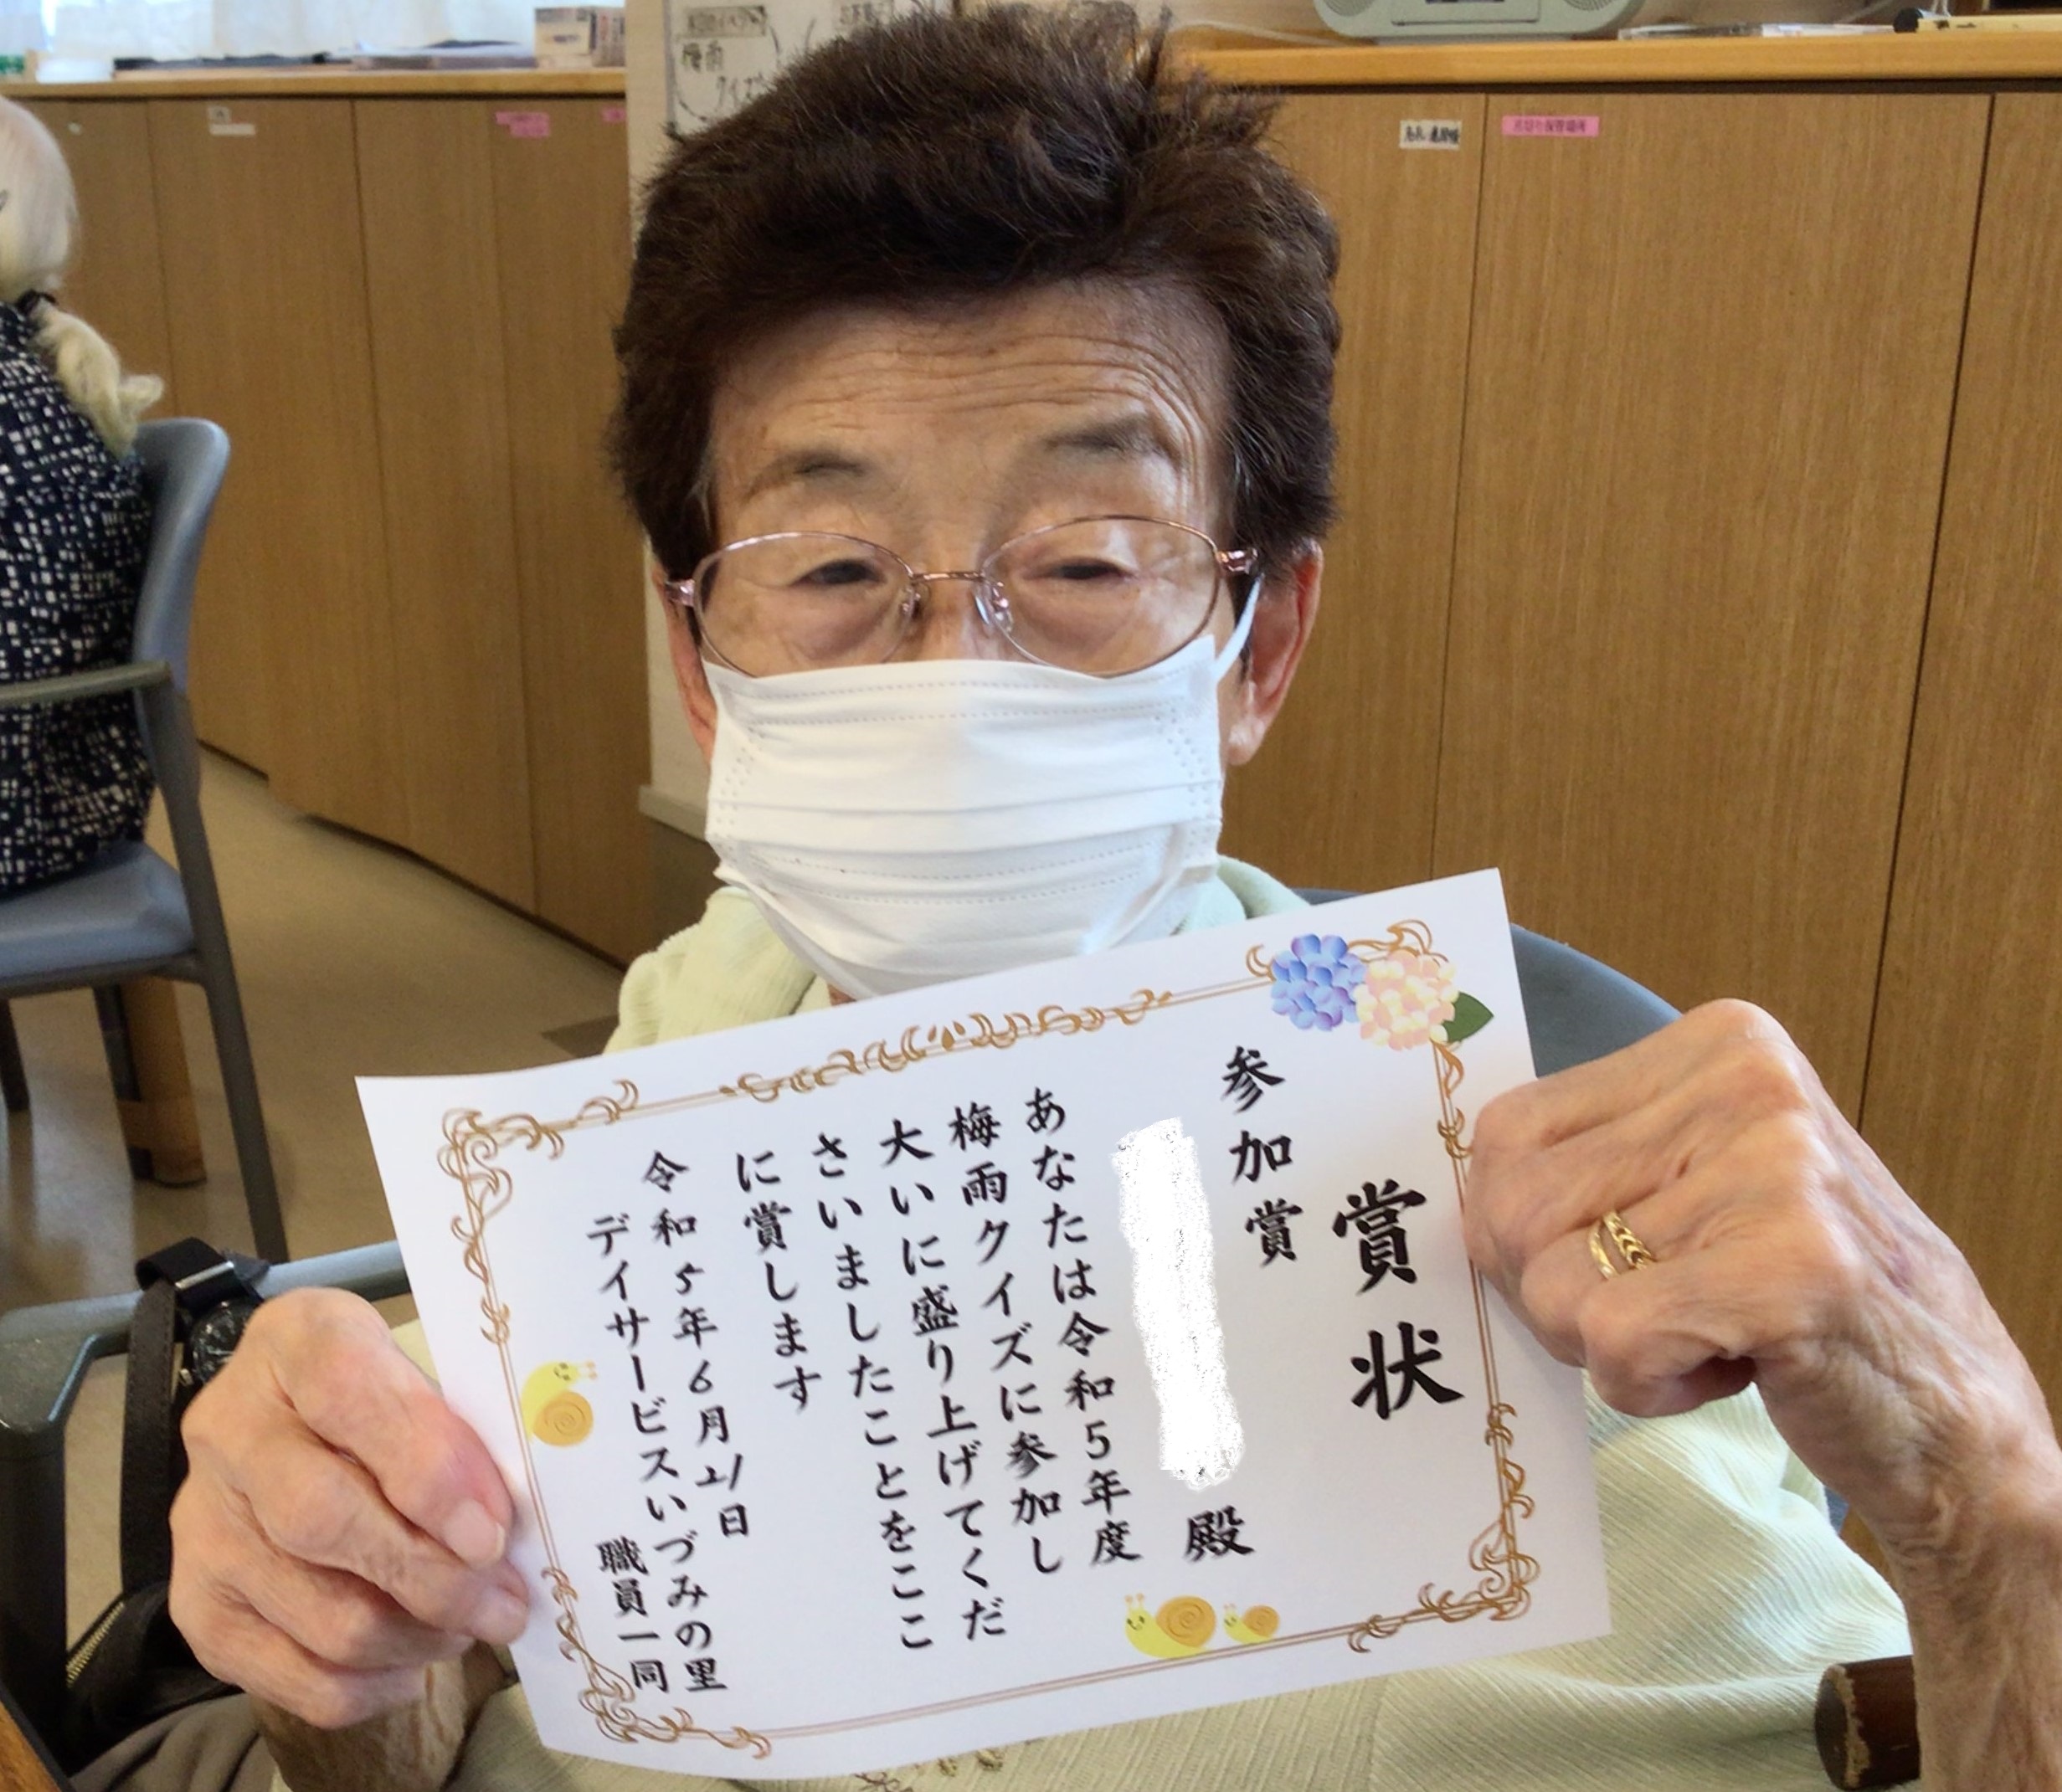 賞状
参加賞
殿
あなたは令和5年度
梅雨クイズに参加し
大いに盛り上げてくだ
さいましたことをここ
に賞します
令和5年6月21日
デイサービスいづみの里
職員一同
梅雨
クイズ